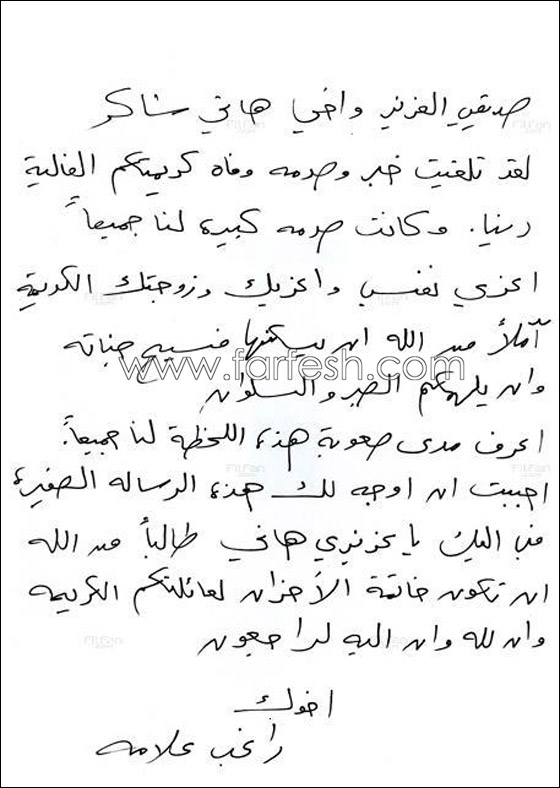 صديقي العزيز واخي هاني شاكر
لقد تلقيت خبر وصدمه وفاه كريمتكم الغالية
دينا. وكانت صدمه كبيره لنا جميعاً
اعزي نفسي واعزيك وزوجتك الكريمة
آملاً من الله ان يسكنها فسيح جناته
www.farfesh.com
وان يلهمكم الصبر والسلوان
اعرف مدى صعوبة هذه اللحظة لنا جميعاً.
احببت ان اوجه لك هذه الرساله الصغيره
مني اليك يا عزيزي هاني طالباً من الله
ان تكون خاتمة الأحزان لعائلتكم الكريمه
وان لله وان اليه لراجعون
اخوك
راغب علامه